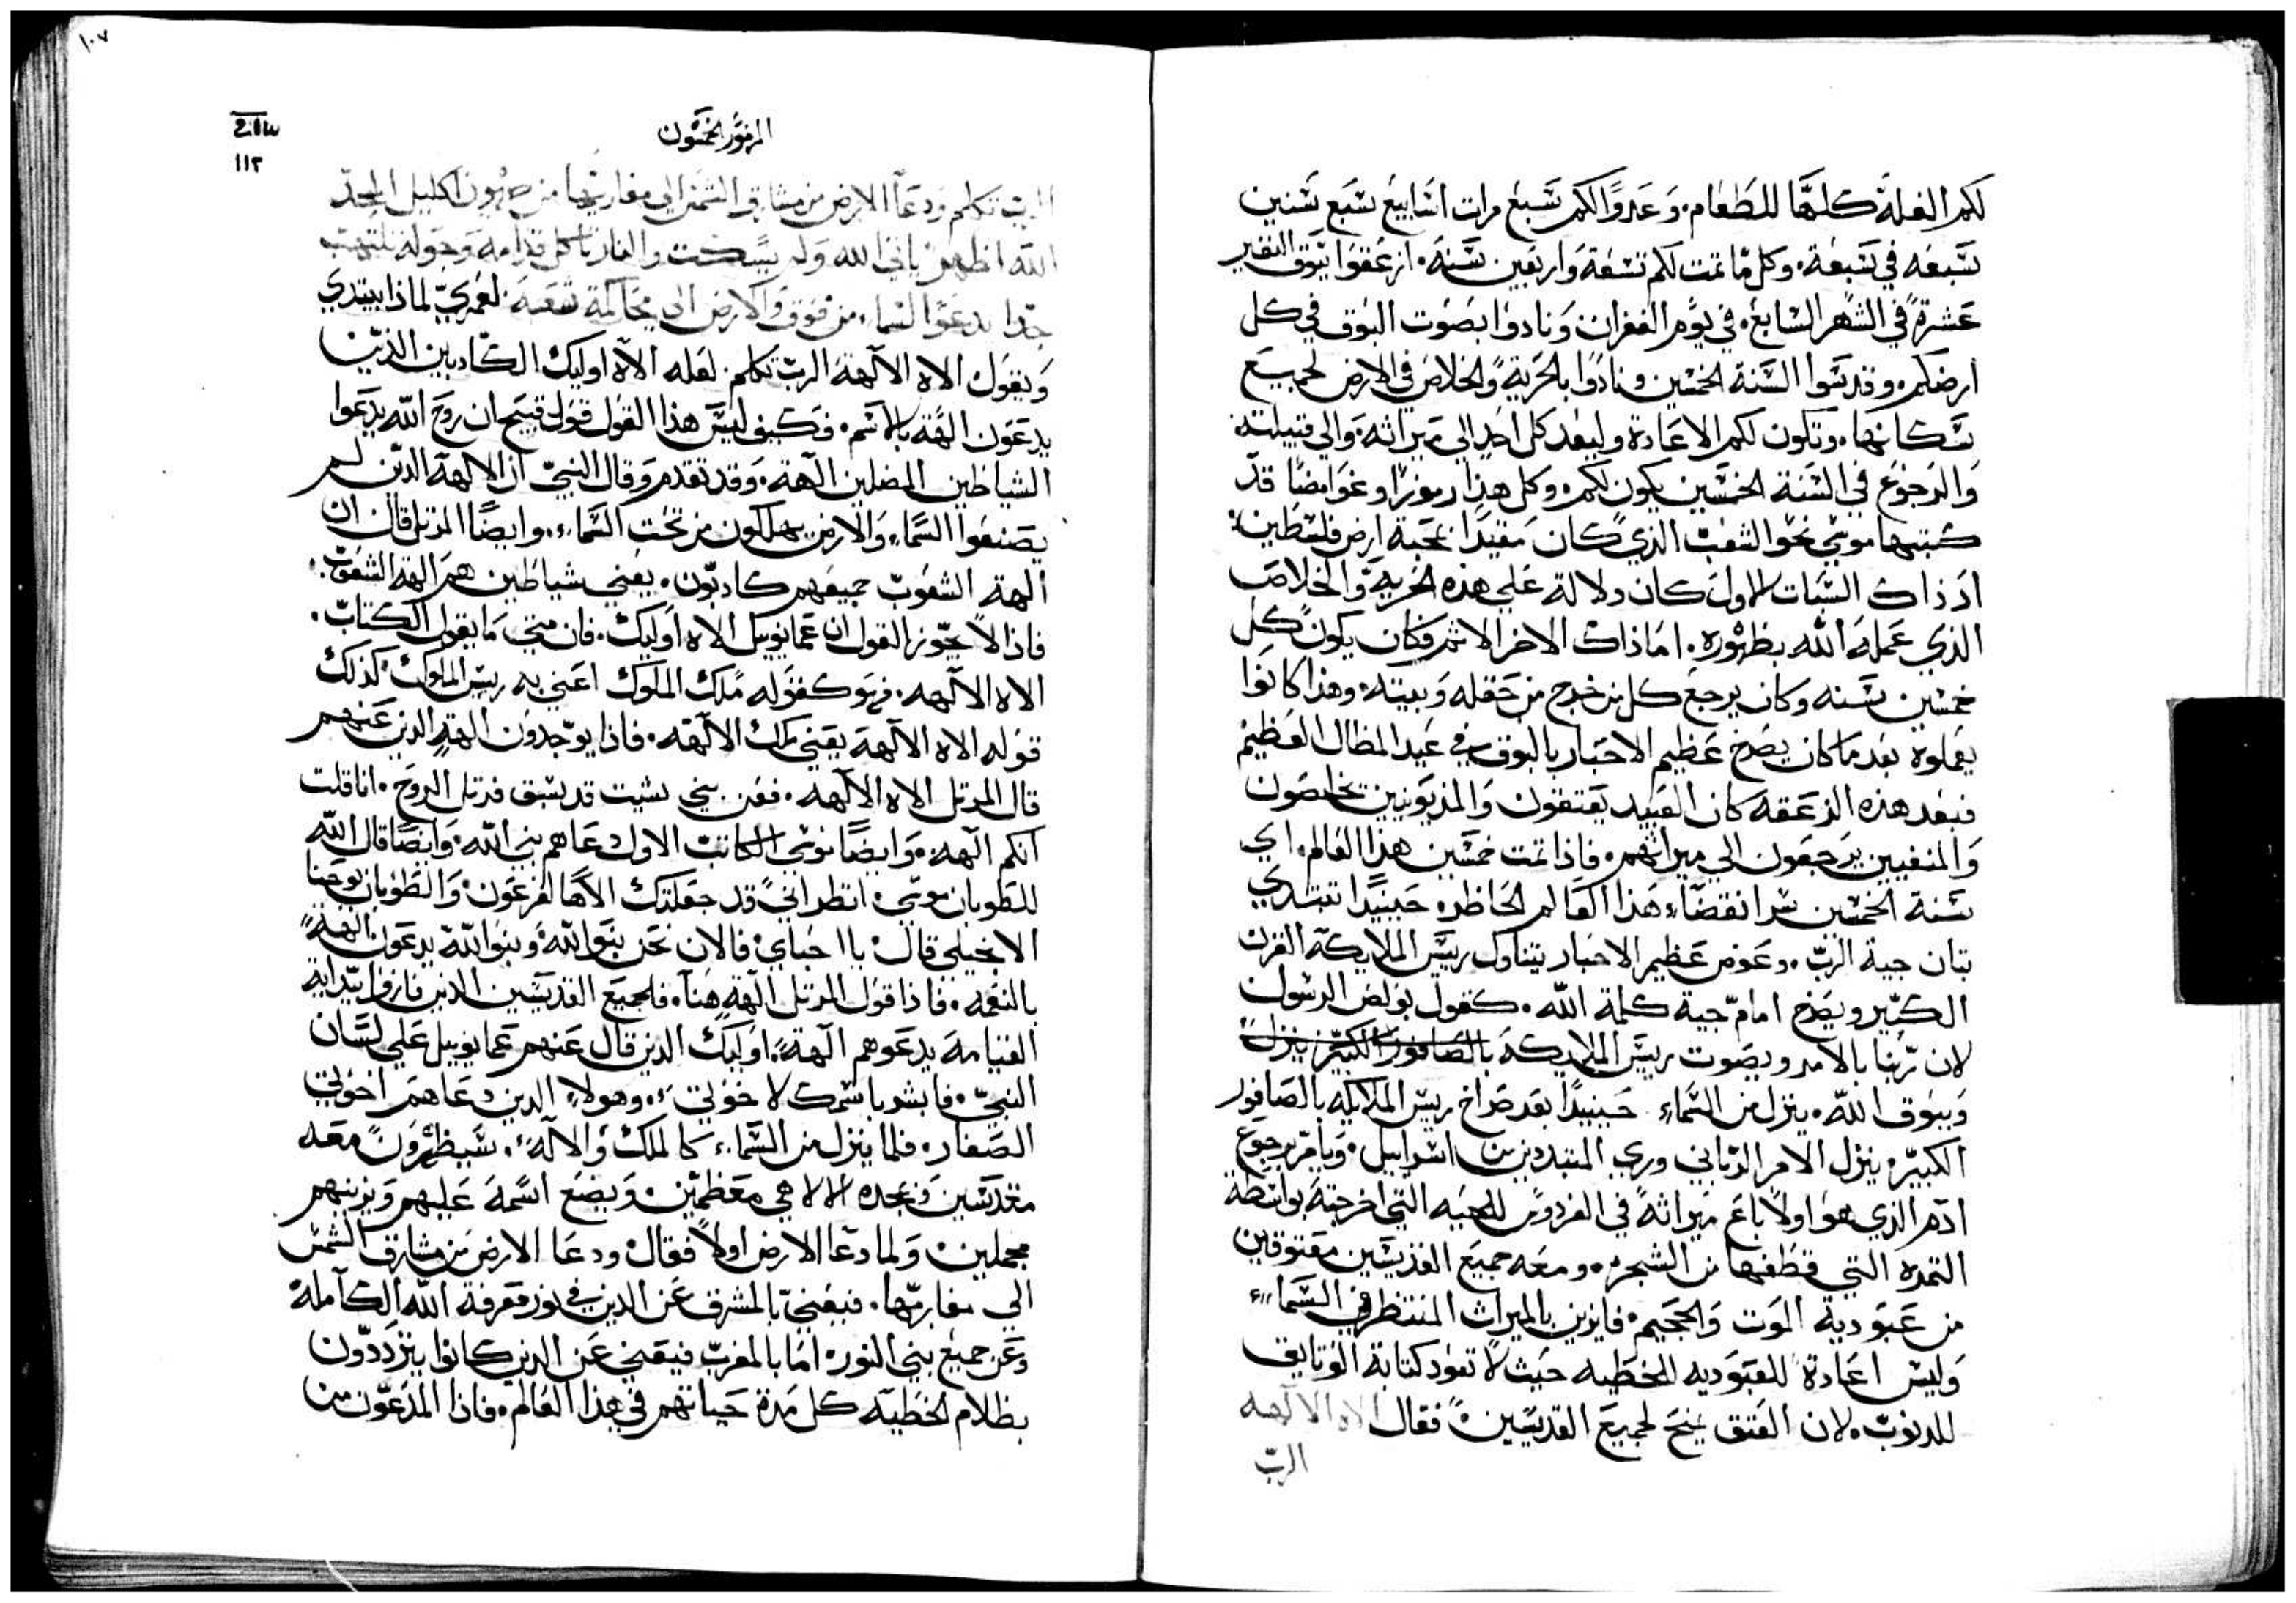 لكم الغلة كلها للطعام. وعدوا لكم سبع مرات اسابيع سبع سنين
سبعه في سبعة. وكل ما تمت لكم تسعة واربعين سنة. ازعقوا ببوق النفير
عشرة في الشهر السابع. في يوم الغفران ونادوا بصوت البوق في كل
ارضكم. وقدسوا السنة الخمسين ونادوا بالحرية والخلاص في الارض لجميع
سكانها. وتكون لكم الاعادة وليعد كل احد الي ميراثه والي قبيلته
والرجوع في السنة الخمسين يكون لكم. وكل هذا رموزا وغوامضا قد
كتبها موسي نحو الشعب الذي كان مقيدا بمحبة ارض فلسطين.
اذ ذاك السبات الاول كان دلالة علي هذه الحرية والخلاص
الذي عمله الله بظهوره. اما ذاك الاخر الاثم فكان يكون كل
خمسين سنه وكان يرجع كل من خرج من حقله وبيته. وهذا كانوا
يعملوه بعد ما كان يصرخ عظيم الاحبار بالبوق في عيد المظال العظيم
فبعد هذه الزعقه كان العبيد يعتقون والمديونين يخلصون
والمنفيين يرجعون الي ميراثهم. فاذا تمت خمسين هذا العالم. اي
سنة الخمسين سر انقضاء هذا العالم الحاظر. حينيدا تبتدي
تبان جية الرب. وعوض عظيم الاحبار يتناول رييس الملايكة القرن
الكبير ويصرخ امام جية كلمة الله. كقول بولص الرسول
لان ربنا بالامر وبصوت رييس الملايكة بالصافور الكبير ينزل
وببوق الله. ينزل من السماء حينيدا بعد صراخ رييس الملايكه بالصافور
الكبير. ينزل الامر الرباني وري المتبددين من اسراييل. ويامر برجوع
ادم الذي هو اولا باع ميراثه في الفردوس للحيه التي اخرجته بواسطة
الثمره التي قطفها من الشجره. ومعه جميع القديسين معتوقين
من عبودية الموت والجحيم. فايزين بالميراث المنتظر في السماء
وليس اعادة للعبوديه للخطيه حيث لا تعود كتابة الوثايق
للدنوب. لان العتق يمنح لجميع القديسين فقال الاه الالهه
الرب
١٠٧
المزمور الخمسون
١١٢
الرب تكلم ودعا الارض من مشارق الشمس الي مغاربها من صهيون اكليل المجد
الله اظهر ياتي الله ولم يسكت والنار تاكل قدامه وحوله تلتهب
جدا يدعو السماء من فوق والارض الي محاكمة شعبه لعمري لماذا يبتدي
ويقول الاه الالهة الرب تكلم. لعله الاه اوليك الكادبين الذين
يدعون الهة بالاسم. فكيف ليس هذا القول قول قبيح ان روح الله يدعوا
الشياطين المضلين الهة. وقد تقدم وقال النبي ان الالهة الذين لم
يصنعوا السماء والارض يهلكون من تحت السماء. وايضا المرتل قال ان
الهة الشعوب جميعهم كادبون. يعني شياطين هم الهة الشعوب.
فاذا لا يجوز القول ان عمانوييل الاه اوليك. فان متي ما يقول الكتاب.
الاه الالهه. فهو كقوله ملك الملوك اعني به رييس الملوك كذلك
قوله الاه الالهة يعني ملك الالهه. فاذا يوجدون الهة الدين عنهم
قال المرتل الاه الالهه. فعن بني شيت قد سبق فرتل الروح. انا قلت
انكم الهه. وايضا موسي الكاتب الاول دعاهم بني الله. وايضا قال الله
للطوبان موسي. انظر اني قد جعلتك الاها لفرعون. والطوبان يوحنا
الانجيلي قال يا احباي فالان نحن بنوا الله. وبنوا الله يدعون الهة
بالنعمه. فاذا قول المرتل الهة هنا. فلجميع القديسين الذين فازوا بتداية
القيامة يدعوهم الهة. اوليك الدين قال عنهم عمانوييل علي لسان
النبي. فابشر باسمك لاخوتي. وهولاء الدين دعاهم اخوتي
الصغار. فلما ينزل من السماء كالملك والاله. سيظهرون معه
مقدسين وبمجده الالاهي معظمين. ويضع اسمه عليهم ويزينهم
مجملين. ولما دعا الارض اولا فقال ودعا الارض من مشارق الشمس
الي مغاربها. فيعني بالمشرق عن الدين في نور معرفة الله الكاملة
وعن جميع بني النور. اما بالمغرب فيعني عن الدين كانوا يترددون
بظلام الخطيه كل مدة حياتهم في هذا العالم. فاذا المدعوون من